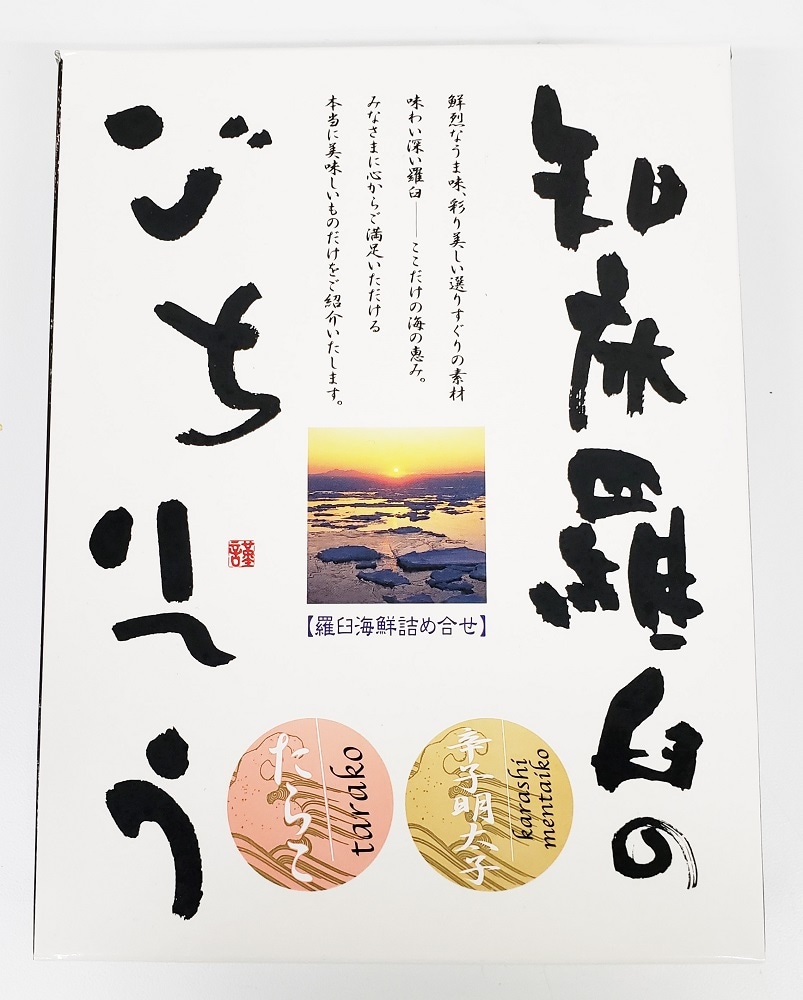 知床羅臼の
鮮烈なうま味、彩り美しい選りすぐりの素材
味わい深い羅臼――ここだけの海の恵み。
みなさまに心からご満足いただける
本当に美味しいものだけをご紹介いたします。
ごちそう
謹
【羅臼海鮮詰め合せ】
辛子明太子
karashi
mentaiko
たらこ
tarako